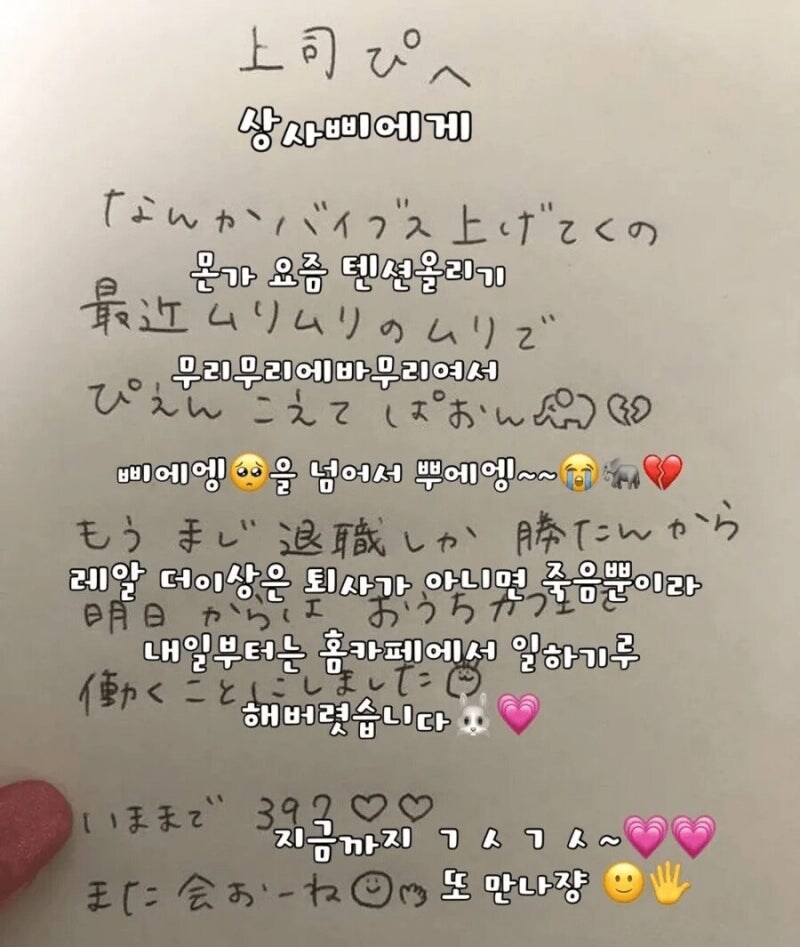 上司ぴへ
상사삐에게
なんかバイブス上げてくの
몬가 요즘 텐션올리기
最近ムリムリのムリで
무리무리에바무리여서
ぴえんこえてぱおん
삐에엥🥺을 넘어서 뿌에엥~~😭🐘💔
もうまじ退職しか勝たんから
레알 더이상은 퇴사가 아니면 죽음뿐이라
明日からはおうちカフェで
내일부터는 홈카페에서 일하기루
働くことにしました
해버렷습니다🐰💗
いままで 39?♡♡
지금까지 ㄱㅅㄱㅅ~💗💗
また会おーね☺
또 만나쟝 🙂🖐